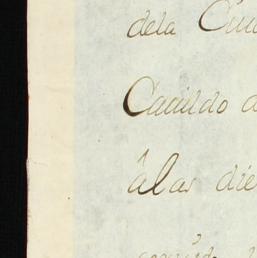 dela Ciu
Cavildo d
â las die